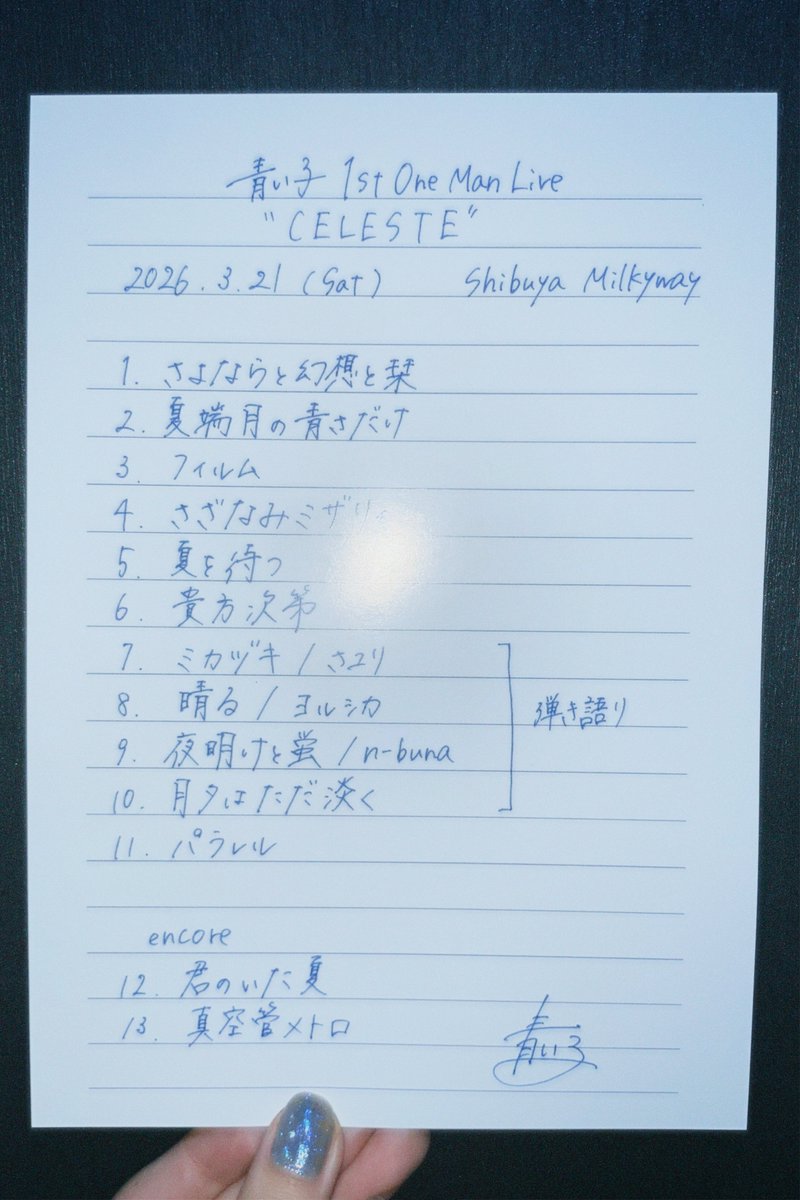 青い子 1st One Man Live
"CELESTE"
2026.3.21 (Sat) Shibuya Milkyway
1. さよならと幻想と栞
2. 夏端月の青さだけ
3. フィルム
4. さざなみミザリィ
5. 夏を待つ
6. 貴方次第
7. ミカヅキ / さユり
8. 晴る / ヨルシカ
9. 夜明けと蛍 / n-buna
10. 月夕はただ淡く
弾き語り
11. パラレル
encore
12. 君のいた夏
13. 真空管メトロ
青い子